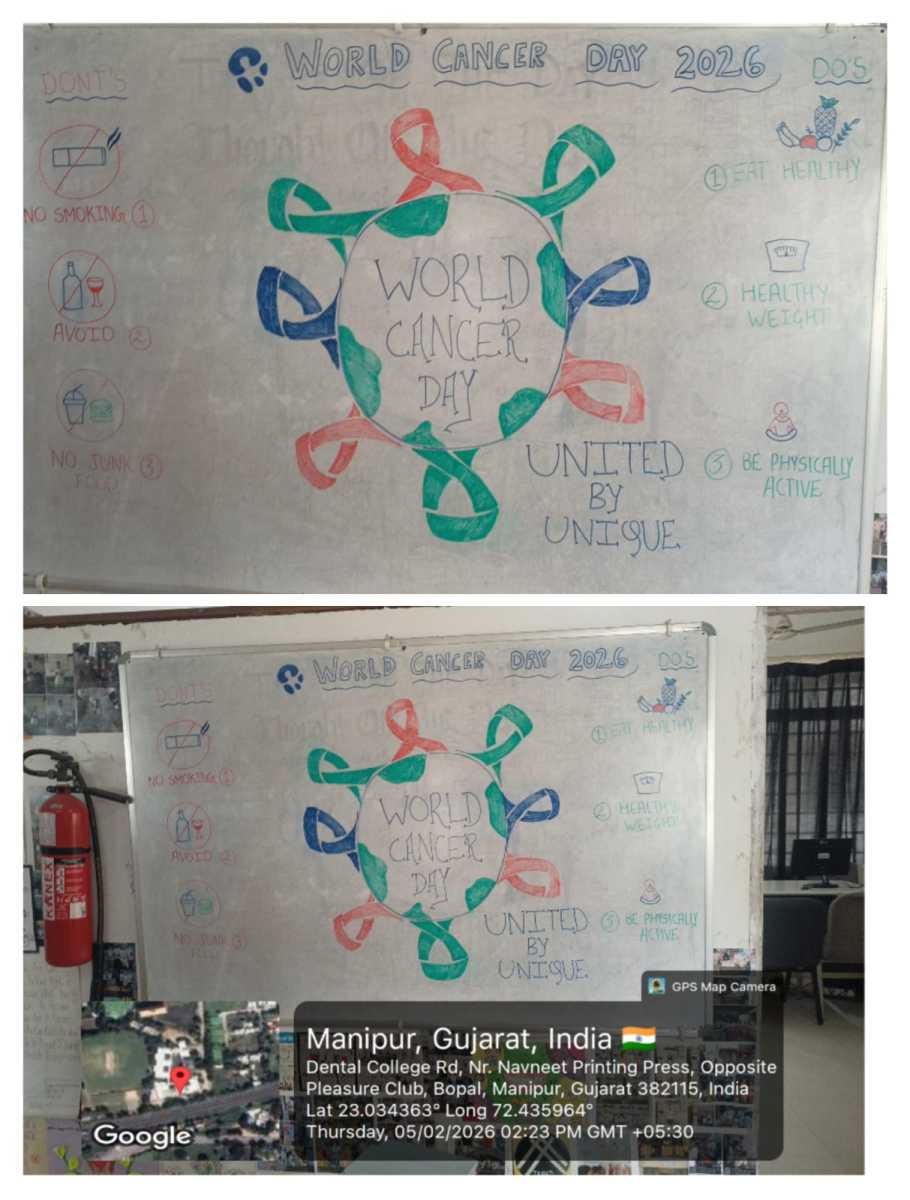 WORLD CANCER DAY 2026
DONT'S
NO SMOKING ①
AVOID ②
NO JUNK ③
FOOD
WORLD
CANCER
DAY
UNITED
BY
UNIQUE
DO'S
① EAT HEALTHY
② HEALTHY
WEIGHT
③ BE PHYSICALLY
ACTIVE
WORLD CANCER DAY 2026
DONT'S
NO SMOKING ①
AVOID ②
NO JUNK ③
FOOD
WORLD
CANCER
DAY
UNITED
BY
UNIQUE
DO'S
① EAT HEALTHY
② HEALTHY
WEIGHT
③ BE PHYSICALLY
ACTIVE
KANEX
GPS Map Camera
Manipur, Gujarat, India
Dental College Rd, Nr. Navneet Printing Press, Opposite
Pleasure Club, Bopal, Manipur, Gujarat 382115, India
Lat 23.034363° Long 72.435964°
Thursday, 05/02/2026 02:23 PM GMT +05:30
Google